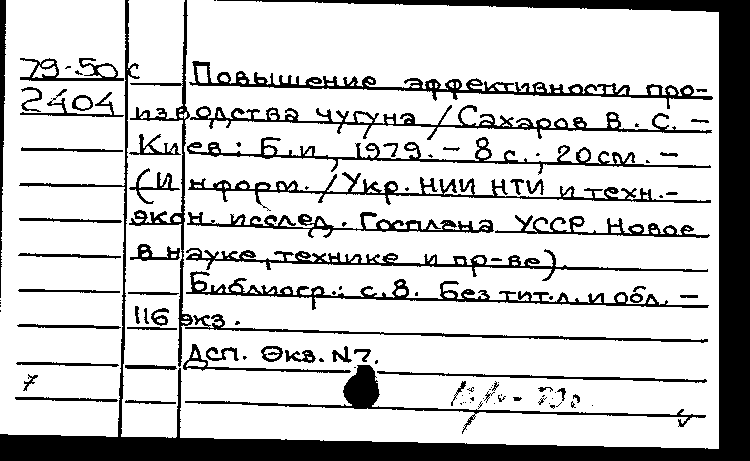 79-50с Повышение эффективности про-
2404 изводства чугуна / Сахаров В. С. -
Киев: Б.и, 1979. - 8 с.; 20см. -
(Информ. / Укр. НИИ НТИ и техн.-
экон. исслед. Госплана УССР. Новое
в науке, технике и пр-ве).
Библиогр.: с.8. Без тит.л. и обл. -
116 экз.
Дсп. Экз. N7.
7
v